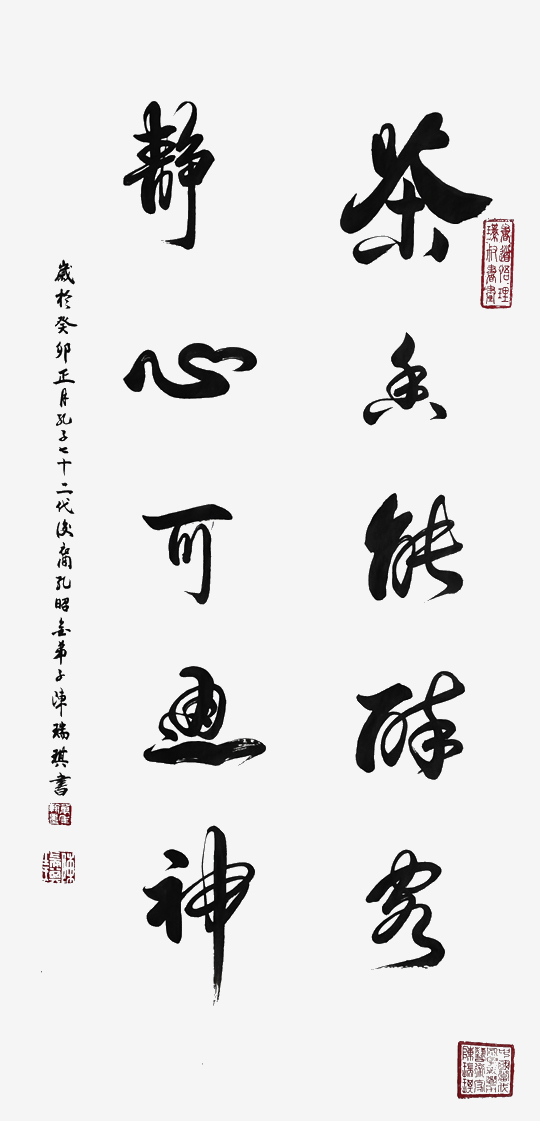 茶香能醉客
静心可通神
歲於癸卯正月孔子七十二代後裔孔昭金弟子陳瑞琪書